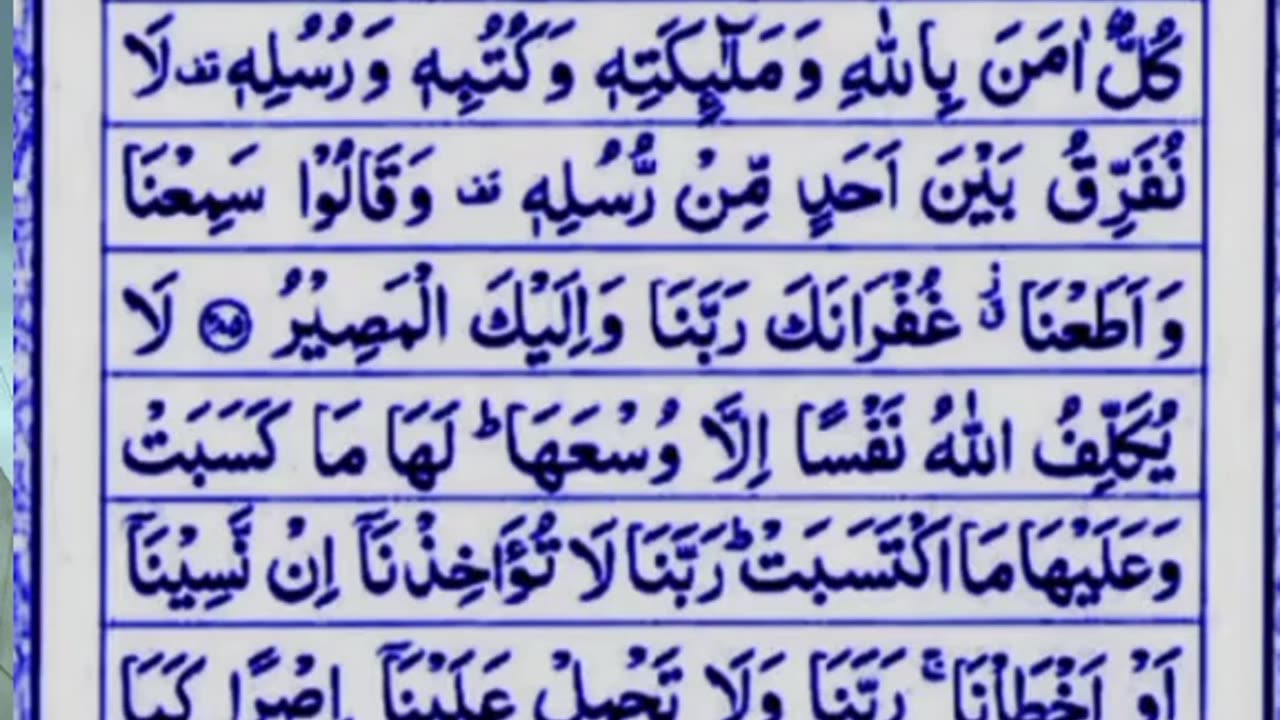 كُلٌّ اٰمَنَ بِاللّٰهِ وَمَلٰٓئِكَتِهٖ وَكُتُبِهٖ وَرُسُلِهٖ قف لَا
نُفَرِّقُ بَيْنَ اَحَدٍ مِّنْ رُّسُلِهٖ قف وَقَالُوْا سَمِعْنَا
وَاَطَعْنَا ز غُفْرَانَكَ رَبَّنَا وَاِلَيْكَ الْمَصِيْرُ ﴿۲۸۵﴾ لَا
يُكَلِّفُ اللّٰهُ نَفْسًا اِلَّا وُسْعَهَا ؕ لَهَا مَا كَسَبَتْ
وَعَلَيْهَا مَا اكْتَسَبَتْ ؕ رَبَّنَا لَا تُؤَاخِذْنَاۤ اِنْ نَّسِيْنَاۤ
اَوْ اَخْطَاْنَا ۚ رَبَّنَا وَلَا تَحْمِلْ عَلَيْنَاۤ اِصْرًا كَمَا